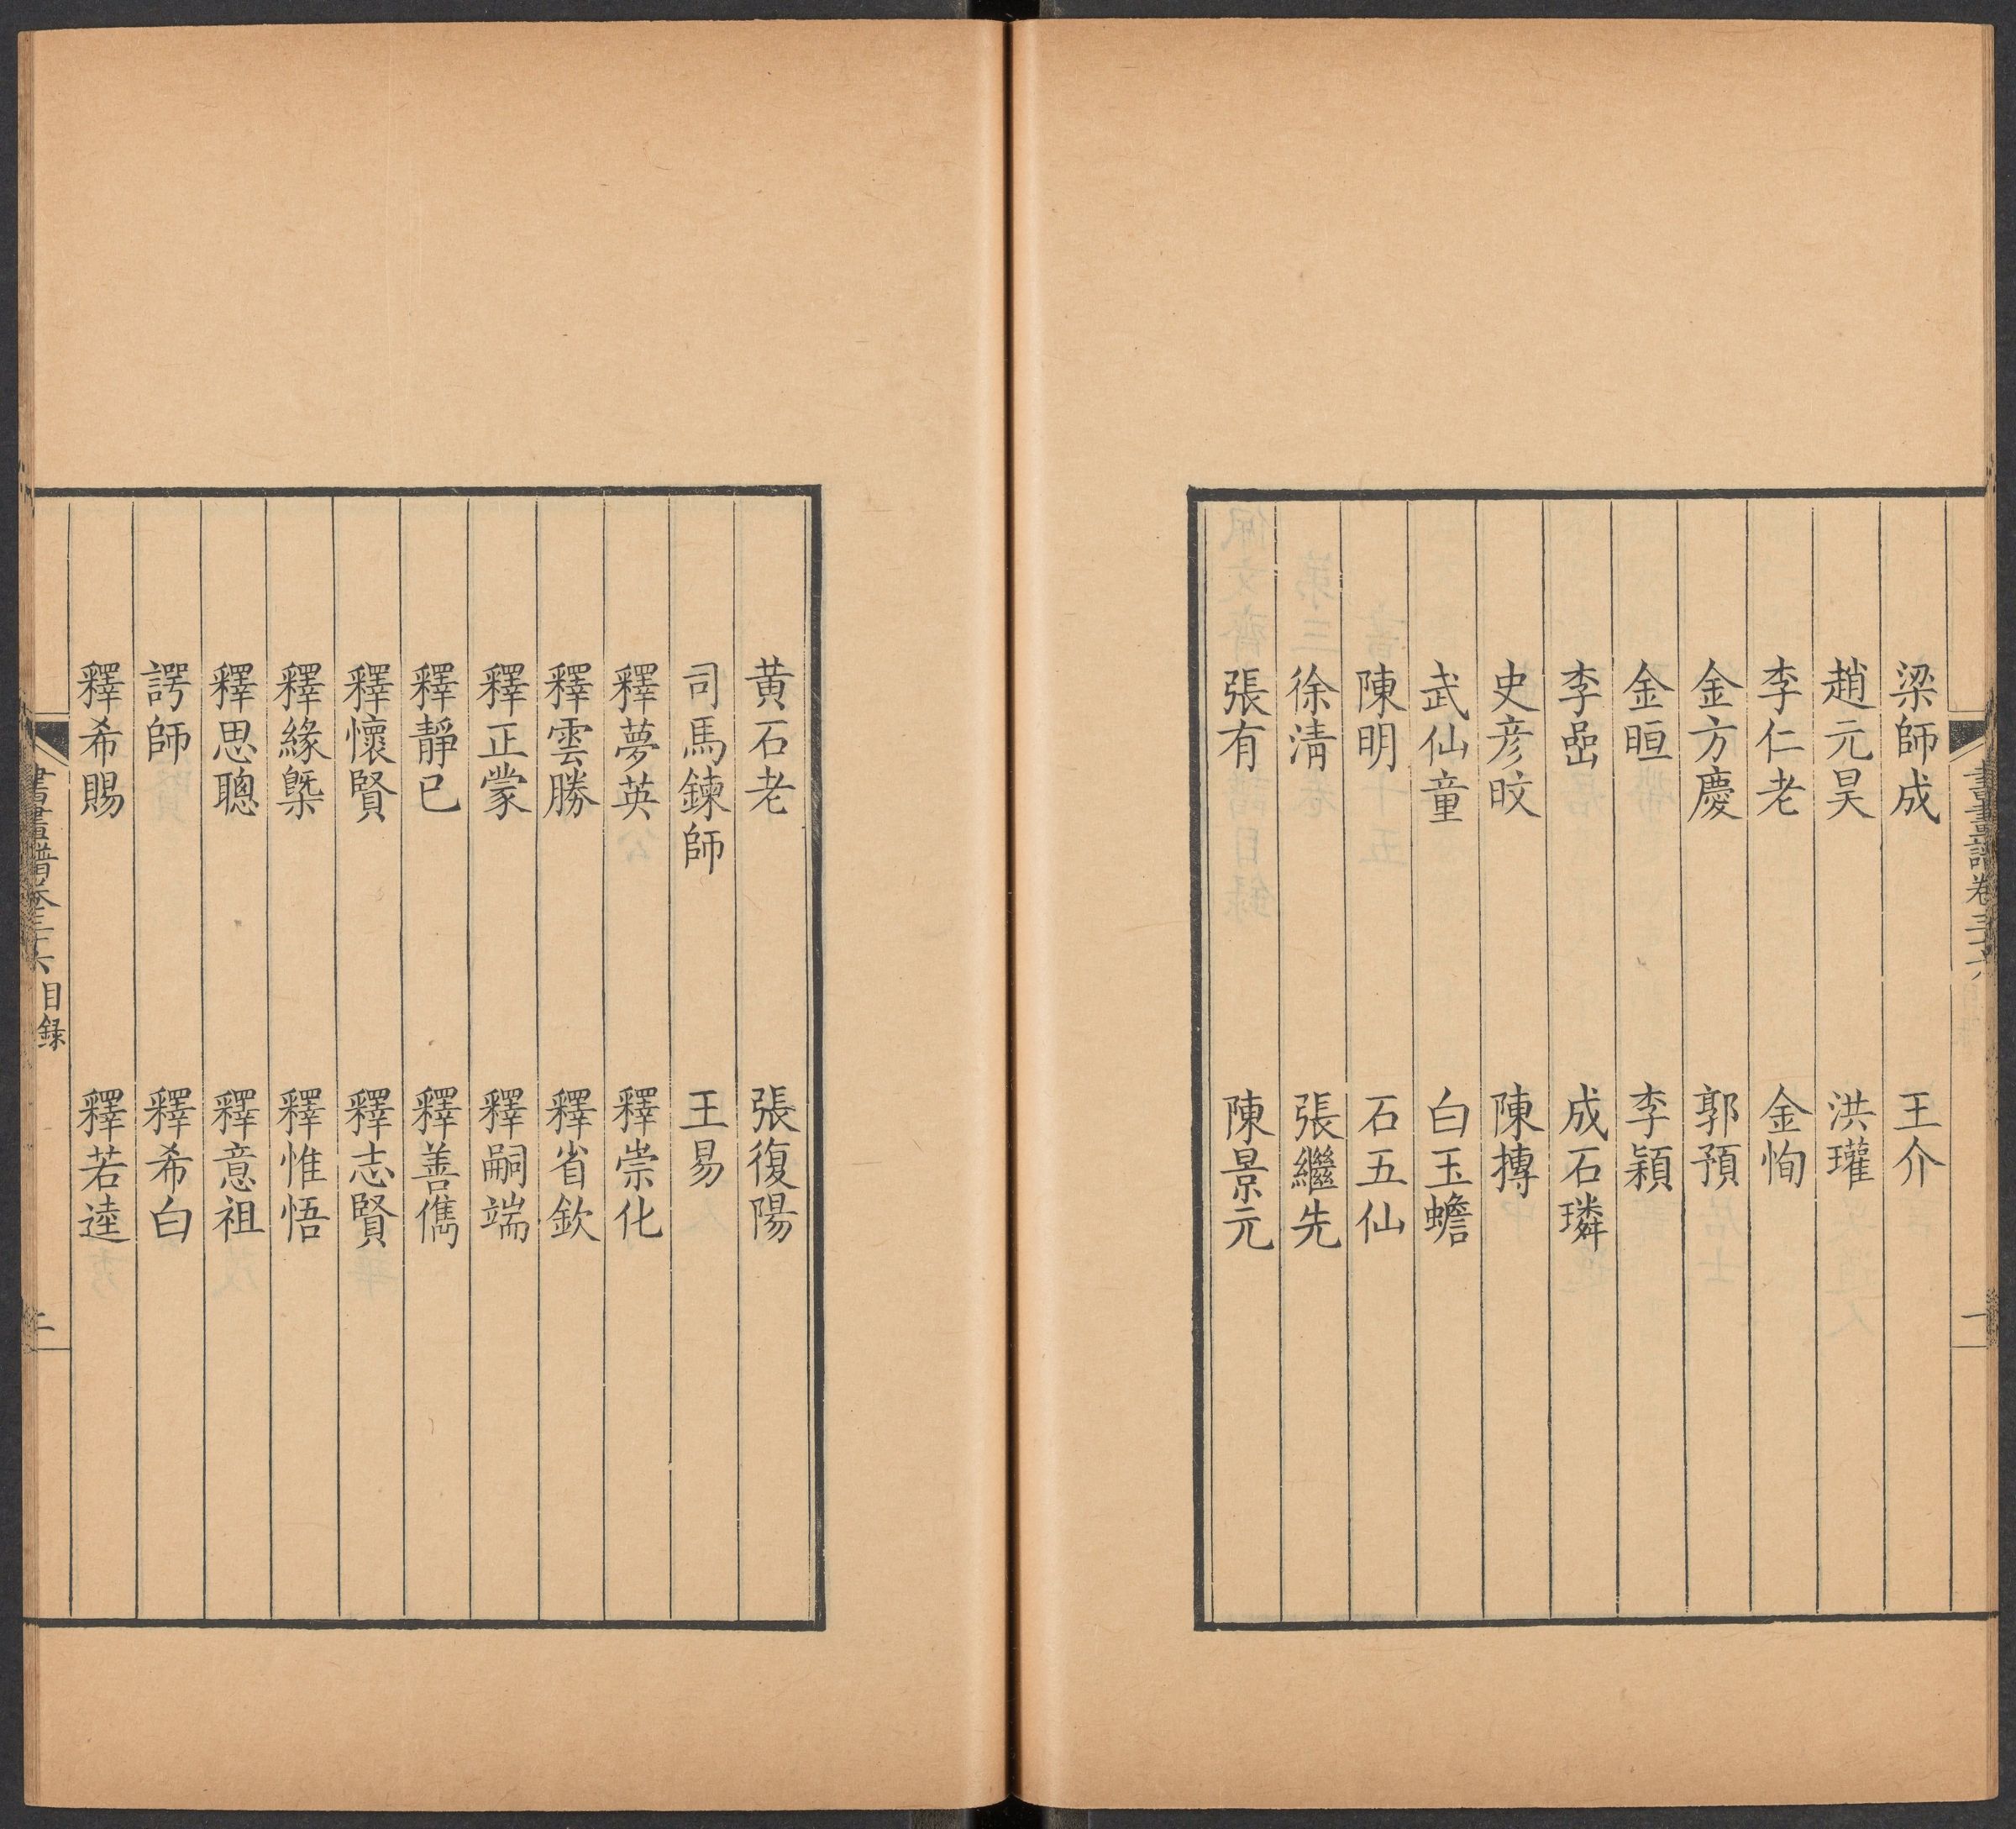 書畫譜卷三十六
一
梁師成 王介
趙元昊 洪瓘
李仁老 金恂
金方慶 郭預
金晅 李穎
李嵒 成石璘
史彦旼 陳摶
武仙童 白玉蟾
陳明 石五仙
徐清 張繼先
張有 陳景元
黃石老 張復陽
司馬鍊師 王易
釋夢英 釋崇化
釋雲勝 釋省欽
釋正蒙 釋嗣端
釋靜已 釋善儁
釋懷賢 釋志賢
釋緣槩 釋惟悟
釋思聰 釋意祖
諤師 釋希白
釋希賜 釋若逵
書畫譜卷三十六 目録
二